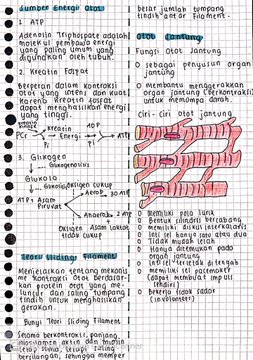 Sumber Energi Otot
1. ATP
Adenosin Triphospate adalah
molekul pembawa energi
yang paling umum yang
digunakan oleh tubuh.
2. Kreatin Fosfat
Berperan dalam kontraksi
otot yang
karena kreatin fosfat
dapat menghasilkan energi
yang tinggi.
kreatin
kinase
Kreatin
ADP
PCr
Pi
Energi
Pi
ATP
3. Glikogen
Glikogenolisis
Glukosa
Glikolisis
Oksigen cukup
ATP + Asam
Piruvat
Aerob
Anaerob
2 ATP
Oksigen
tidak cukup
Asam laktat
Teori Sliding Filament
Menjelaskan tentang mekanis
me kontraksi otot berdasar-
kan protein otot yang me-
luncur dan saling tumpang
tindih untuk menghasilkan
gerakan.
Bunyi Teori Sliding Filament
Selama berkontraksi, panjang
filamen aktin dan miosin
tetap sama, tetapi saling
bersilangan, sehingga memper
besar jumlah tumpang
tindih antar filamen.
Otot Jantung
Fungsi Otot Jantung
o sebagai penyusun organ
jantung
o membantu menggerakkan
organ jantung (berkontraksi)
untuk memompa darah.
Ciri - Ciri otot jantung
o Memiliki pola lurik
o Bentuk silindris bercabang
o memiliki diskus interkalaris
o Inti sel hanya satu atau dua
o Tidak mudah lelah
o Hanya ditemukan pada
organ jantung
o Inti sel terletak di tengah
o memiliki sel pacemaker
(dapat membuat impuls
sendiri)
o Bekerja tidak sadar
(involunter)